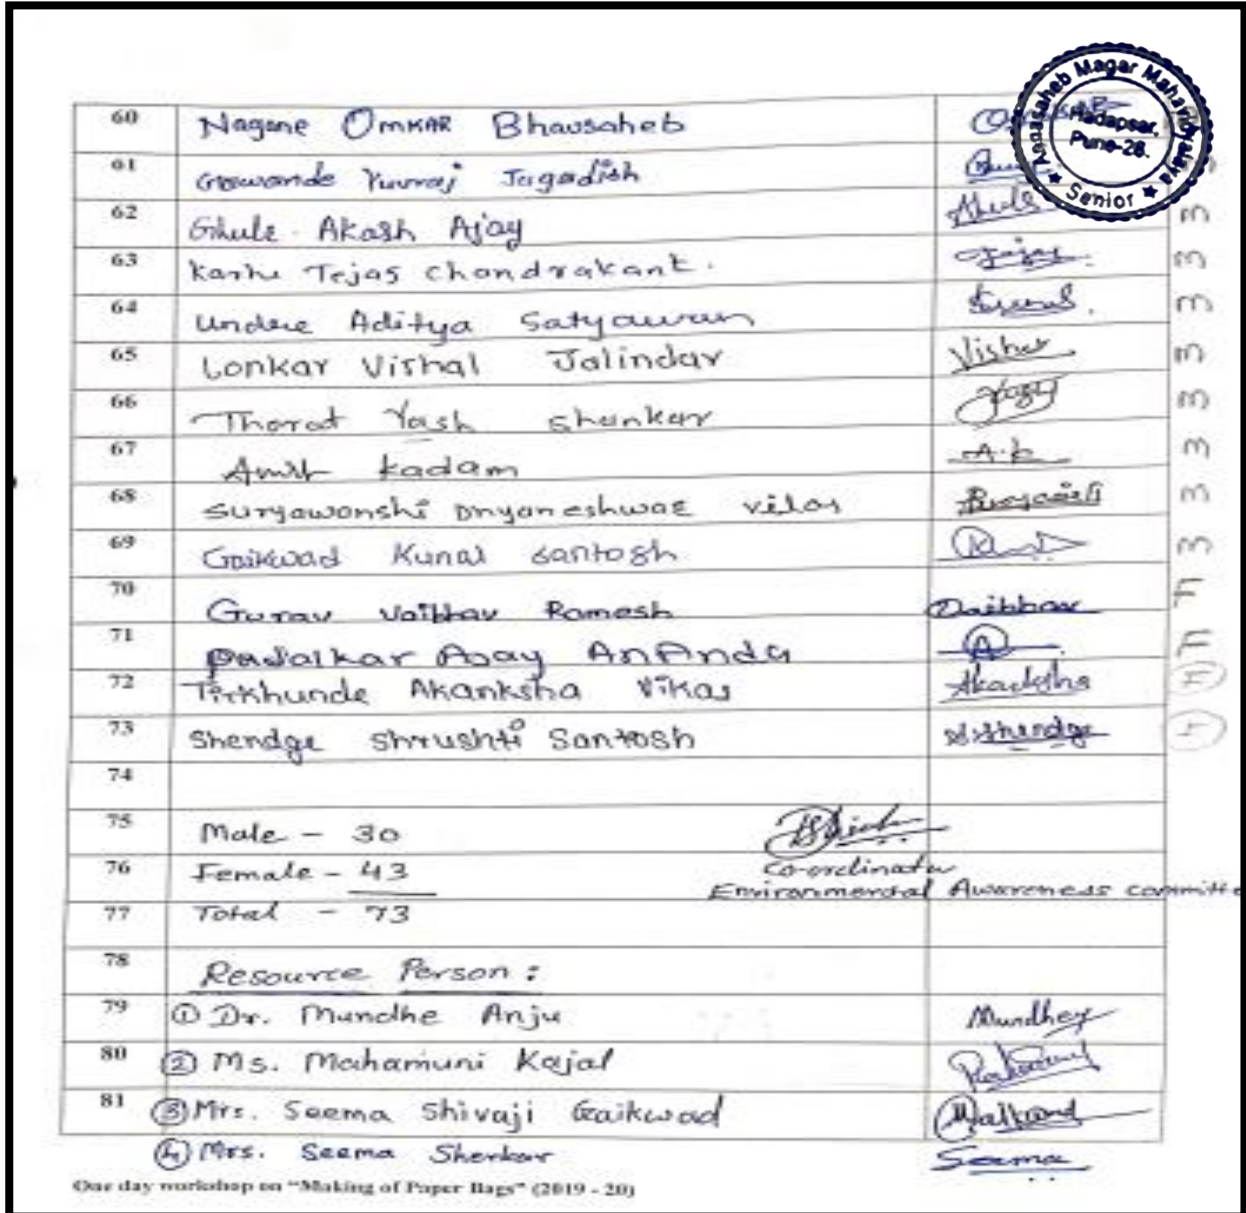 Annasaheb Magar Mahavidyalaya
Hadapsar,
Pune-28.
★ Senior ★
60 Nagane OMKAR Bhausaheb
61 Gawande Yuvraj Jagadish
62 Ghule Akash Ajay M
63 Karhe Tejas Chandrakant. M
64 Undre Aditya Satyawan M
65 Lonkar Vishal Jalindar Vishal M
66 Thorat Yash Shankar M
67 Amit Kadam A.k M
68 Suryawanshi Dnyaneshwar Vilas M
69 Gaikwad Kunal Santosh M
70 Gurav Vaibhav Ramesh Vaibhav F
71 Padalkar Ajay AnAnda A F
72 Tirkhunde Akanksha Vikas Akanksha F
73 Shendge Shrushti Santosh S.Shendge F
74
75 Male - 30
76 Female - 43 Co-ordinator
Environmental Awareness committe
77 Total - 73
78 Resource Person :
79 ① Dr. Mundhe Anju Mundhe
80 ② Ms. Mahamuni Kajal
81 ③ Mrs. Seema Shivaji Gaikwad
④ Mrs. Seema Sherkar Seema
One day workshop on "Making of Paper Bags" (2019 - 20)